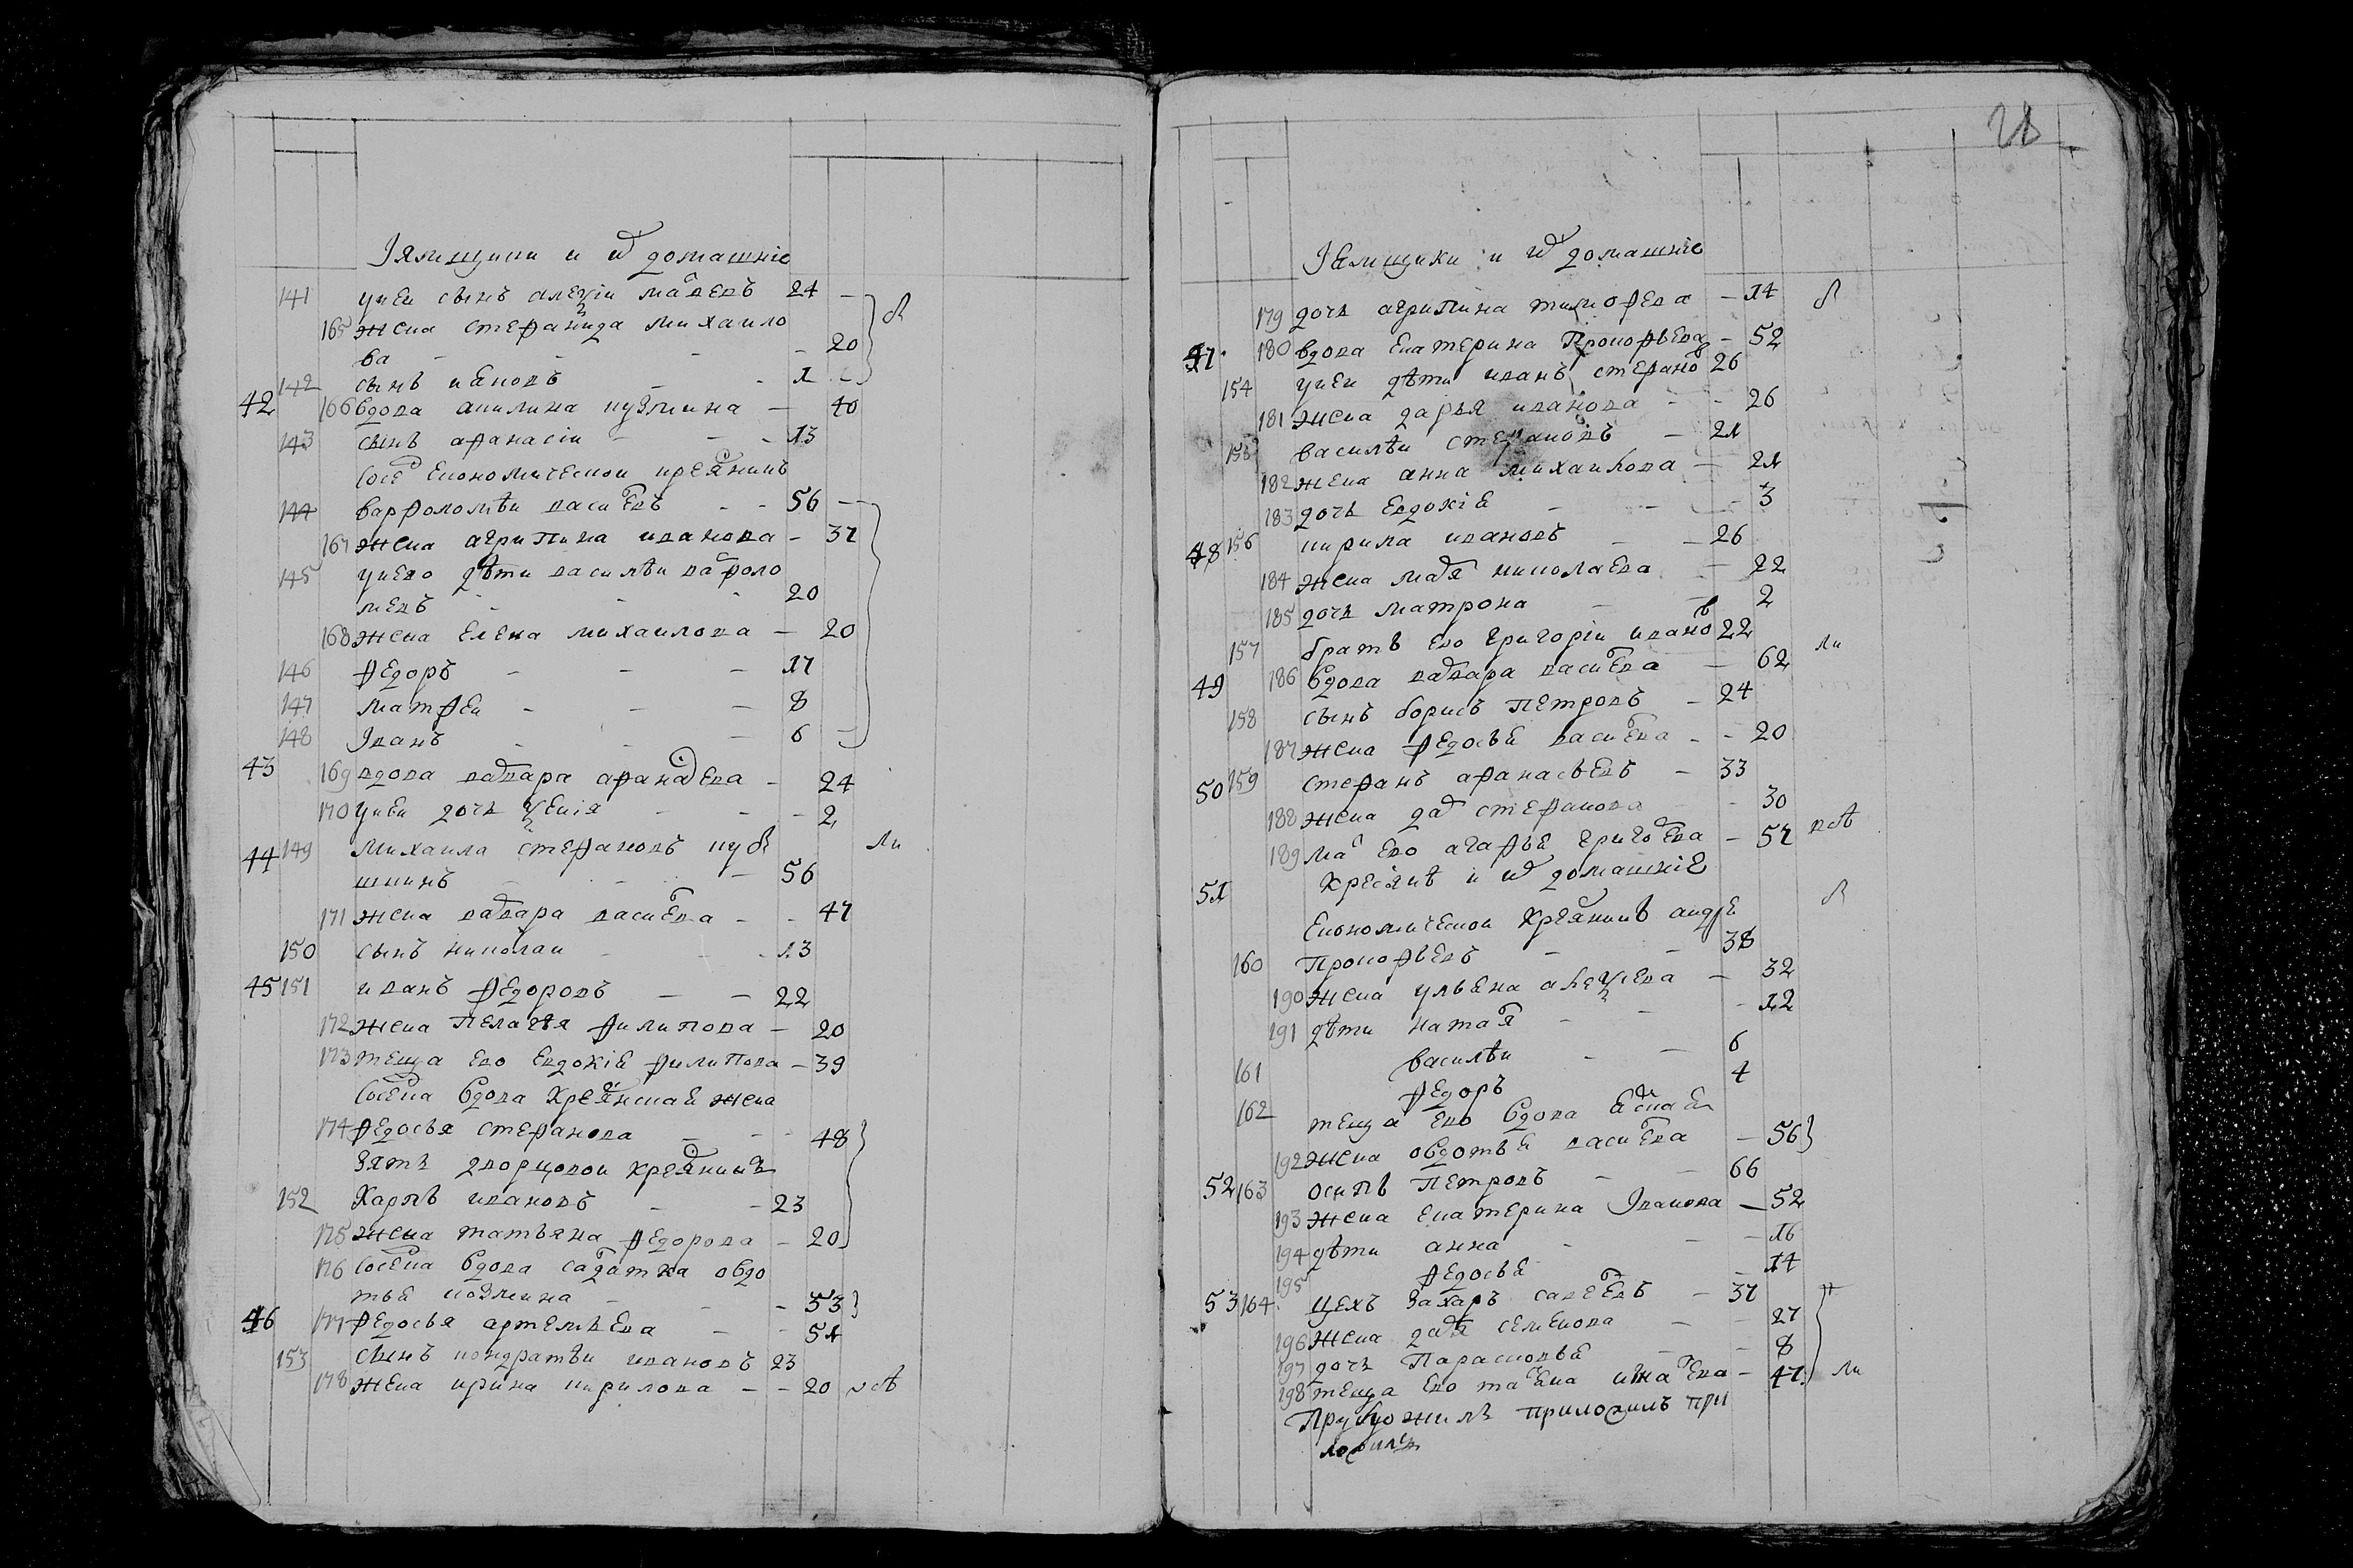 Ямщики и их домашние
141 у неи сынъ алеѯіи матвѣевъ 24
165 жена стефанида михаило
ва 20
142 сынъ ивановъ 1
42 166 вдова акилина кузмина 40
143 сынъ афанасіи 13
сосед економическои крестьянинъ
144 варфоломѣи васильевъ 56
167 жена агрипина иванова 37
145 у нево дѣти василѣи варфоло
меевъ 20
168 жена елена михаилова 20
146 федоръ 17
147 матфеи 8
148 Iванъ 6
43 169 вдова варвара афанасьева 24
170 у неи дочь ѯенія 2
44 149 михаила стефановъ куб
шкинъ 56 ли
171 жена варвара васильева 47
150 сынъ николаи 13
45 151 иванъ федоровъ 22
172 жена пелагѣя филипова 20
173 теща ево евдокіа филипова 39
соседка вдова крестьянская жена
174 федосья стефанова 48
зять дворцовои крестьянинъ
152 Карпъ ивановъ 23
175 жена татьяна федорова 20
176 соседка вдова салдатка овдо
тья козмина 53
46 177 федосья артемьева 51
153 сынъ кондратѣи ивановъ 23
178 жена ирина кирилова 20
28
Ямщики и их домашние
179 дочь агрипина тимофева 14
47 180 вдова екатерина Прокофьева 52
154 у неи дѣти иванъ стефановъ 26
181 жена дарья иванова 26
155 василѣи стефановъ 21
182 жена анна михаилова 21
183 дочь евдокіа 3
48 156 кирила ивановъ 26
184 жена марья николаева 22
185 дочь матрона 2
157 братъ ево григоріи ивановъ 22
49 186 вдова варвара васильева 62 ли
158 сынъ борисъ петровъ 24
187 жена федосья васильева 20
50 159 стефанъ афанасьевъ 33
188 жена дарья стефанова 30
189 мать ево агафья григорьева 57
51 Крестьяне и их домашние
економическои крестьянинъ андре
160 Прокофьевъ 38
190 жена ульяна алеѯѣева 32
191 дѣти наталья 12
161 василѣи 6
162 федоръ 4
теща ево вдова
192 жена овдотья васильева 56
52 163 осипъ петровъ 66
193 жена екатерина Iванова 52
194 дѣти анна 16
195 федосья 14
53 164 цехъ захаръ савельевъ 37
196 жена дарья семенова 27
197 дочь Парасковья 8
198 теща ево татьяна игнатьева 47 ли